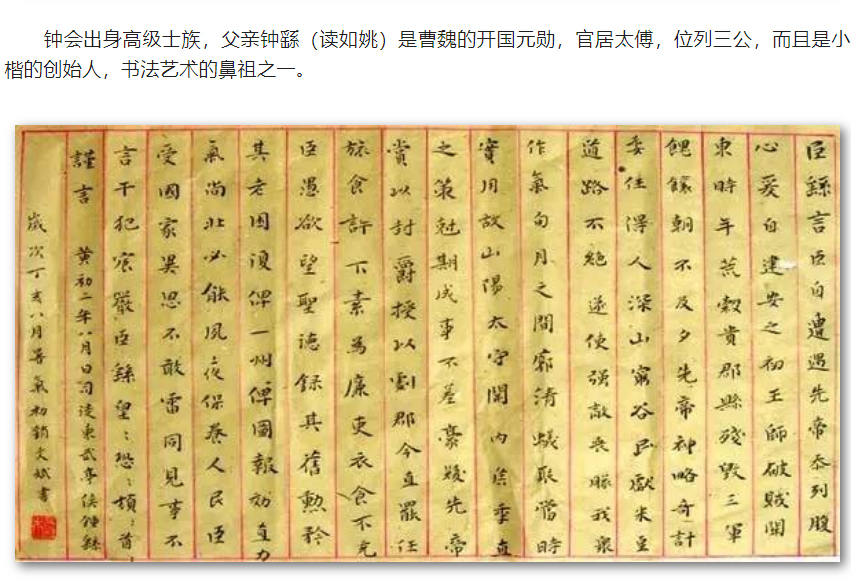 钟会出身高级士族，父亲钟繇（读如姚）是曹魏的开国元勋，官居太傅，位列三公，而且是小
楷的创始人，书法艺术的鼻祖之一。
臣繇言臣自遭遇先帝忝列腹
心爰自建安之初王師破賊關
東時年荒穀貴郡縣殘毀三軍
餽饟朝不及夕先帝神略奇計
委任得人深山窮谷民獻米豆
道路不絕遂使强敵喪膽我衆
作氣旬月之間廓清蟻聚當時
實用故山陽太守關內侯季直
之策尅期成事不差豪髮先帝
賞以封爵授以劇郡今直罷任
旅食許下素為廉吏衣食不充
臣愚欲望聖德錄其舊勳矜
其老困復俾一州俾圖報效直力
氣尚壯必能夙夜保養人民臣
受國家異恩不敢雷同見事不
言干犯宸嚴臣繇皇:恐:頓:首:
謹言 黃初二年八月日司徒東武亭侯鍾繇
歲次丁亥八月暑氣初銷文斌書